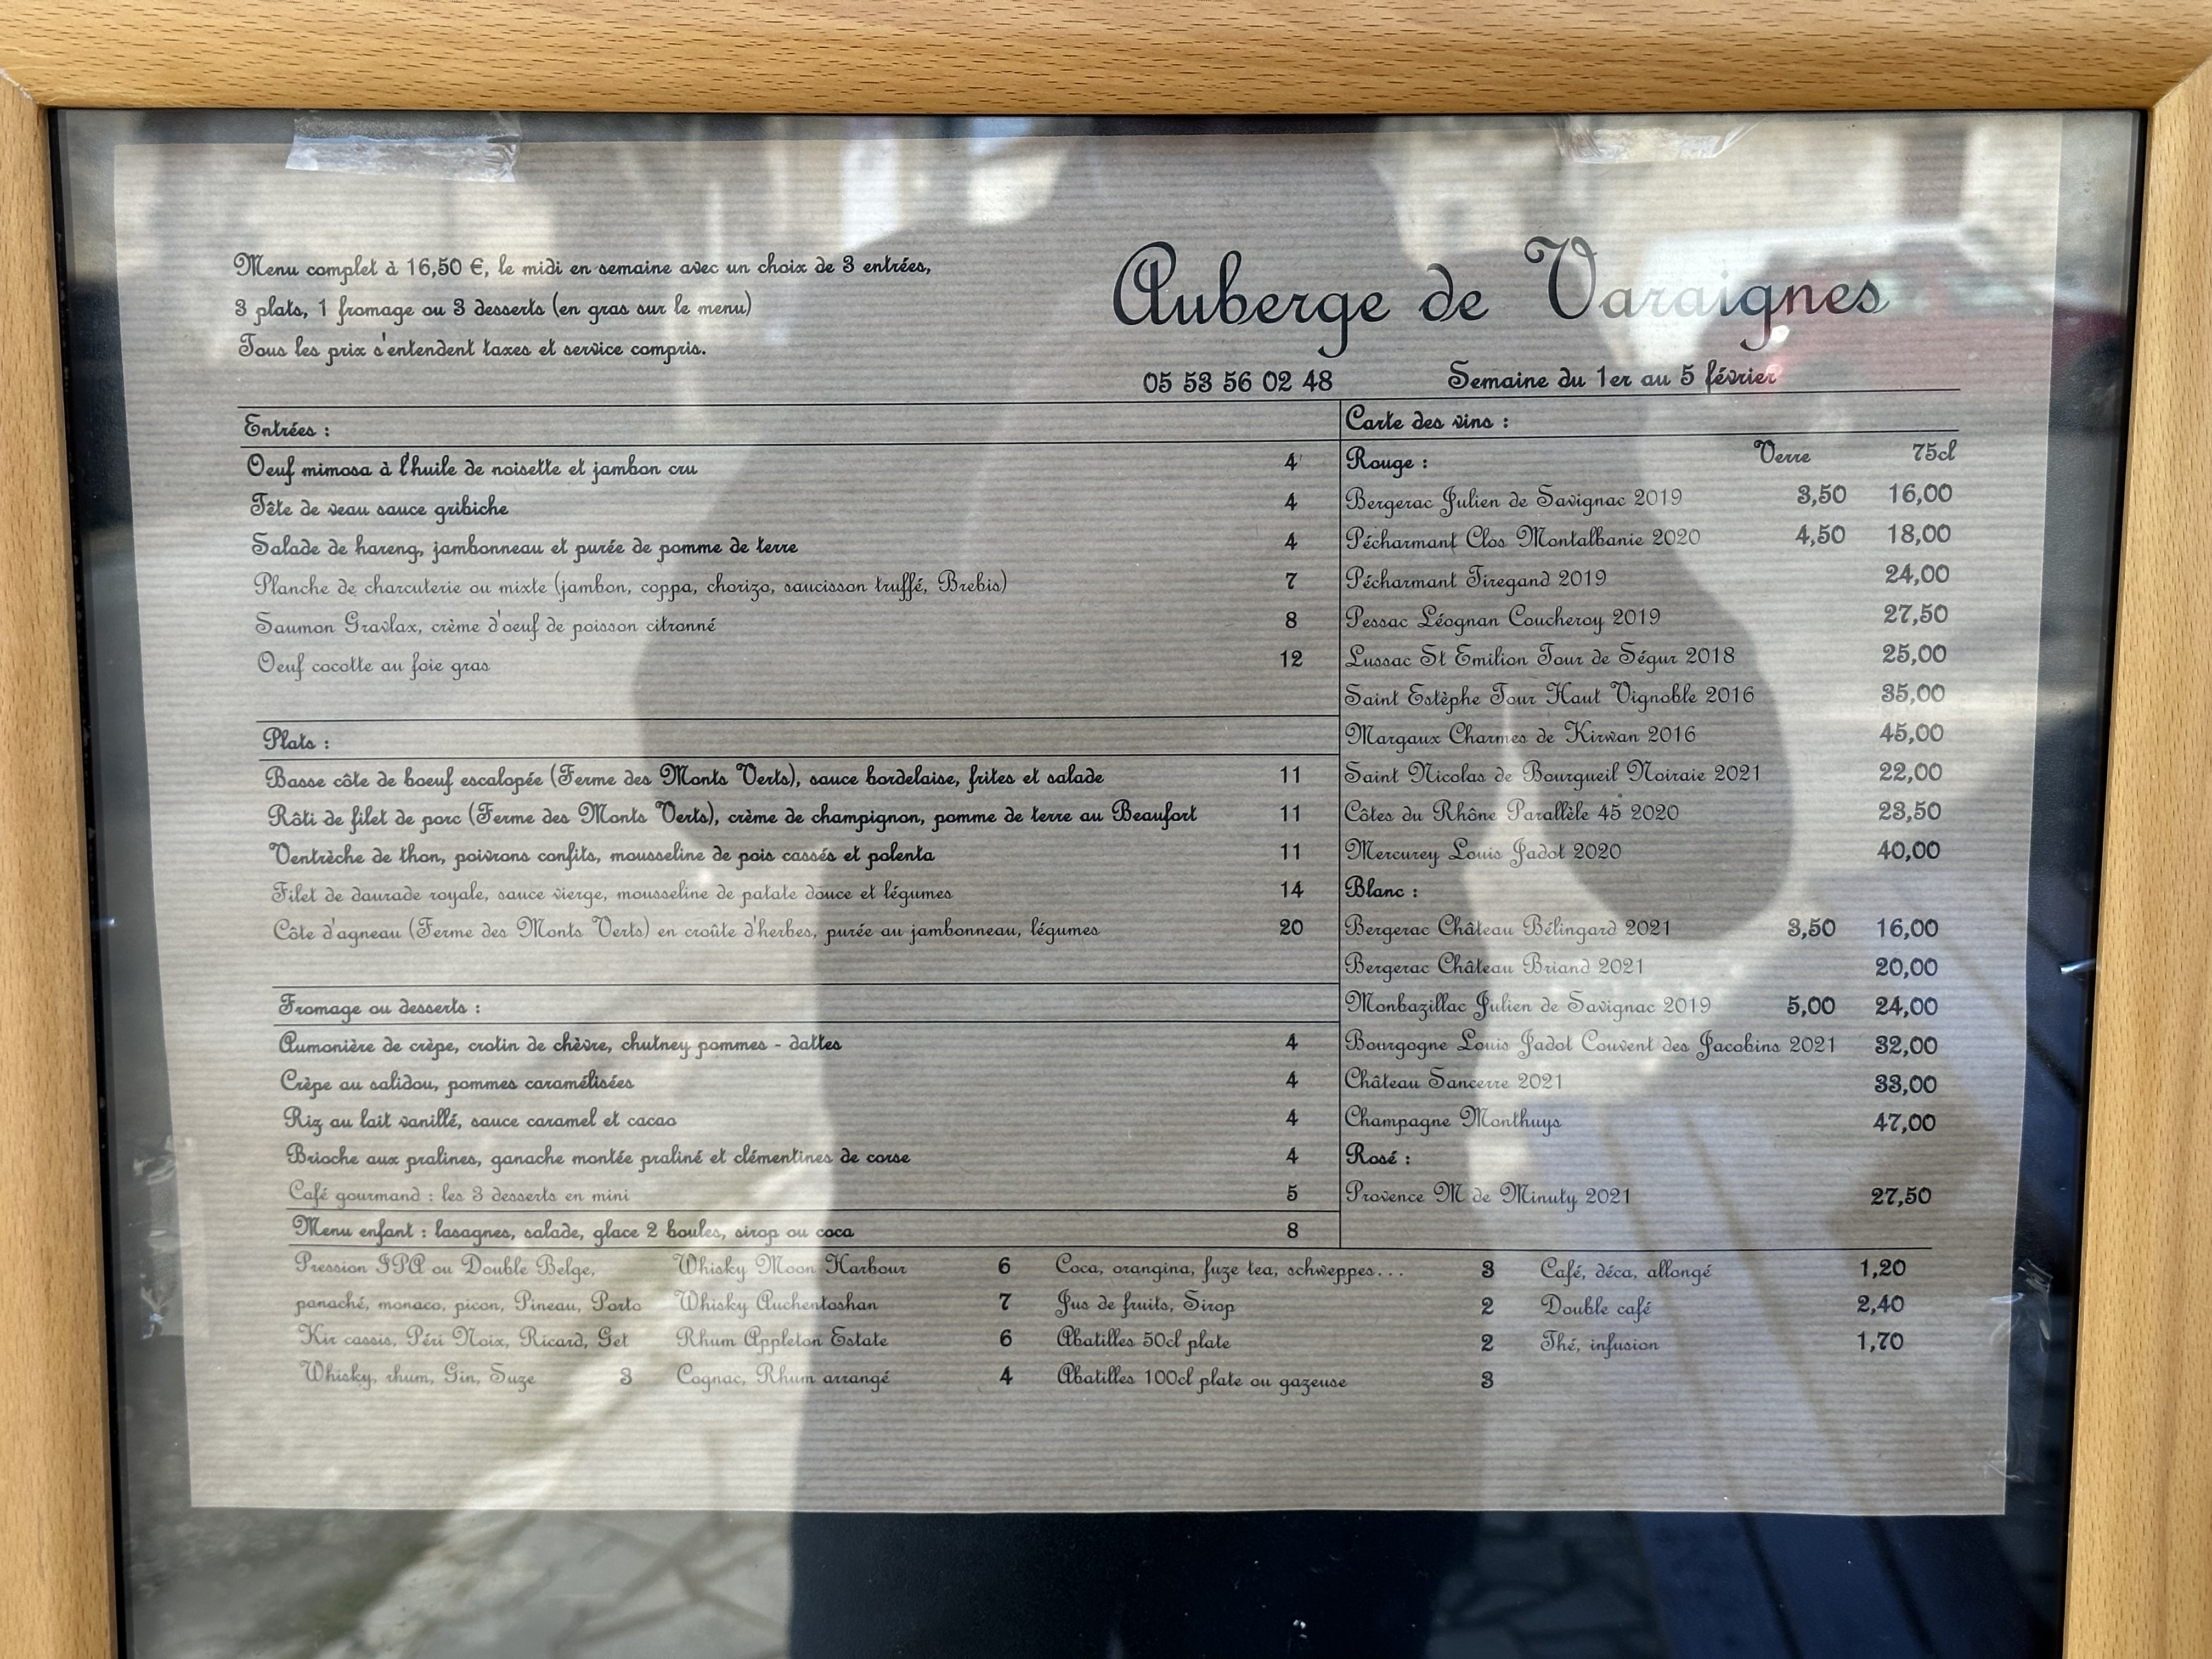 Menu complet à 16,50 €, le midi en semaine avec un choix de 3 entrées,
3 plats, 1 fromage ou 3 desserts (en gras sur le menu)
Tous les prix s'entendent taxes et service compris.
Auberge de Varaignes
05 53 56 02 48 Semaine du 1er au 5 février
Entrées :
Oeuf mimosa à l'huile de noisette et jambon cru 4
Tête de veau sauce gribiche 4
Salade de hareng, jambonneau et purée de pomme de terre 4
Planche de charcuterie ou mixte (jambon, coppa, chorizo, saucisson truffé, Brebis) 7
Saumon Gravlax, crème d'oeuf de poisson citronné 8
Oeuf cocotte au foie gras 12
Plats :
Basse côte de boeuf escalopée (Ferme des Monts Verts), sauce bordelaise, frites et salade 11
Rôti de filet de porc (Ferme des Monts Verts), crème de champignon, pomme de terre au Beaufort 11
Ventrèche de thon, poivrons confits, mousseline de pois cassés et polenta 11
Filet de daurade royale, sauce vierge, mousseline de patate douce et légumes 14
Côte d'agneau (Ferme des Monts Verts) en croûte d'herbes, purée au jambonneau, légumes 20
Fromage ou desserts :
Aumonière de crèpe, crotin de chèvre, chutney pommes - dattes 4
Crèpe au salidou, pommes caramélisées 4
Riz au lait vanillé, sauce caramel et cacao 4
Brioche aux pralines, ganache montée praliné et clémentines de corse 4
Café gourmand : les 3 desserts en mini 5
Menu enfant : lasagnes, salade, glace 2 boules, sirop ou coca 8
Carte des vins :
Rouge : Verre 75cl
Bergerac Julien de Savignac 2019 3,50 16,00
Pécharmant Clos Montalbanie 2020 4,50 18,00
Pécharmant Tiregand 2019 24,00
Pessac Léognan Coucheroy 2019 27,50
Lussac St Emilion Tour de Ségur 2018 25,00
Saint Estèphe Tour Haut Vignoble 2016 35,00
Margaux Charmes de Kirwan 2016 45,00
Saint Nicolas de Bourgueil Noiraie 2021 22,00
Côtes du Rhône Parallèle 45 2020 23,50
Mercurey Louis Jadot 2020 40,00
Blanc :
Bergerac Château Bélingard 2021 3,50 16,00
Bergerac Château Briand 2021 20,00
Monbazillac Julien de Savignac 2019 5,00 24,00
Bourgogne Louis Jadot Couvent des Jacobins 2021 32,00
Château Sancerre 2021 33,00
Champagne Monthuys 47,00
Rosé :
Provence M de Minuty 2021 27,50
Pression IPA ou Double Belge, Whisky Moon Harbour 6 Coca, orangina, fuze tea, schweppes... 3 Café, déca, allongé 1,20
panaché, monaco, picon, Pineau, Porto Whisky Auchentoshan 7 Jus de fruits, Sirop 2 Double café 2,40
Kir cassis, Péri Noix, Ricard, Get Rhum Appleton Estate 6 Abatilles 50cl plate 2 Thé, infusion 1,70
Whisky, rhum, Gin, Suze 3 Cognac, Rhum arrangé 4 Abatilles 100cl plate ou gazeuse 3